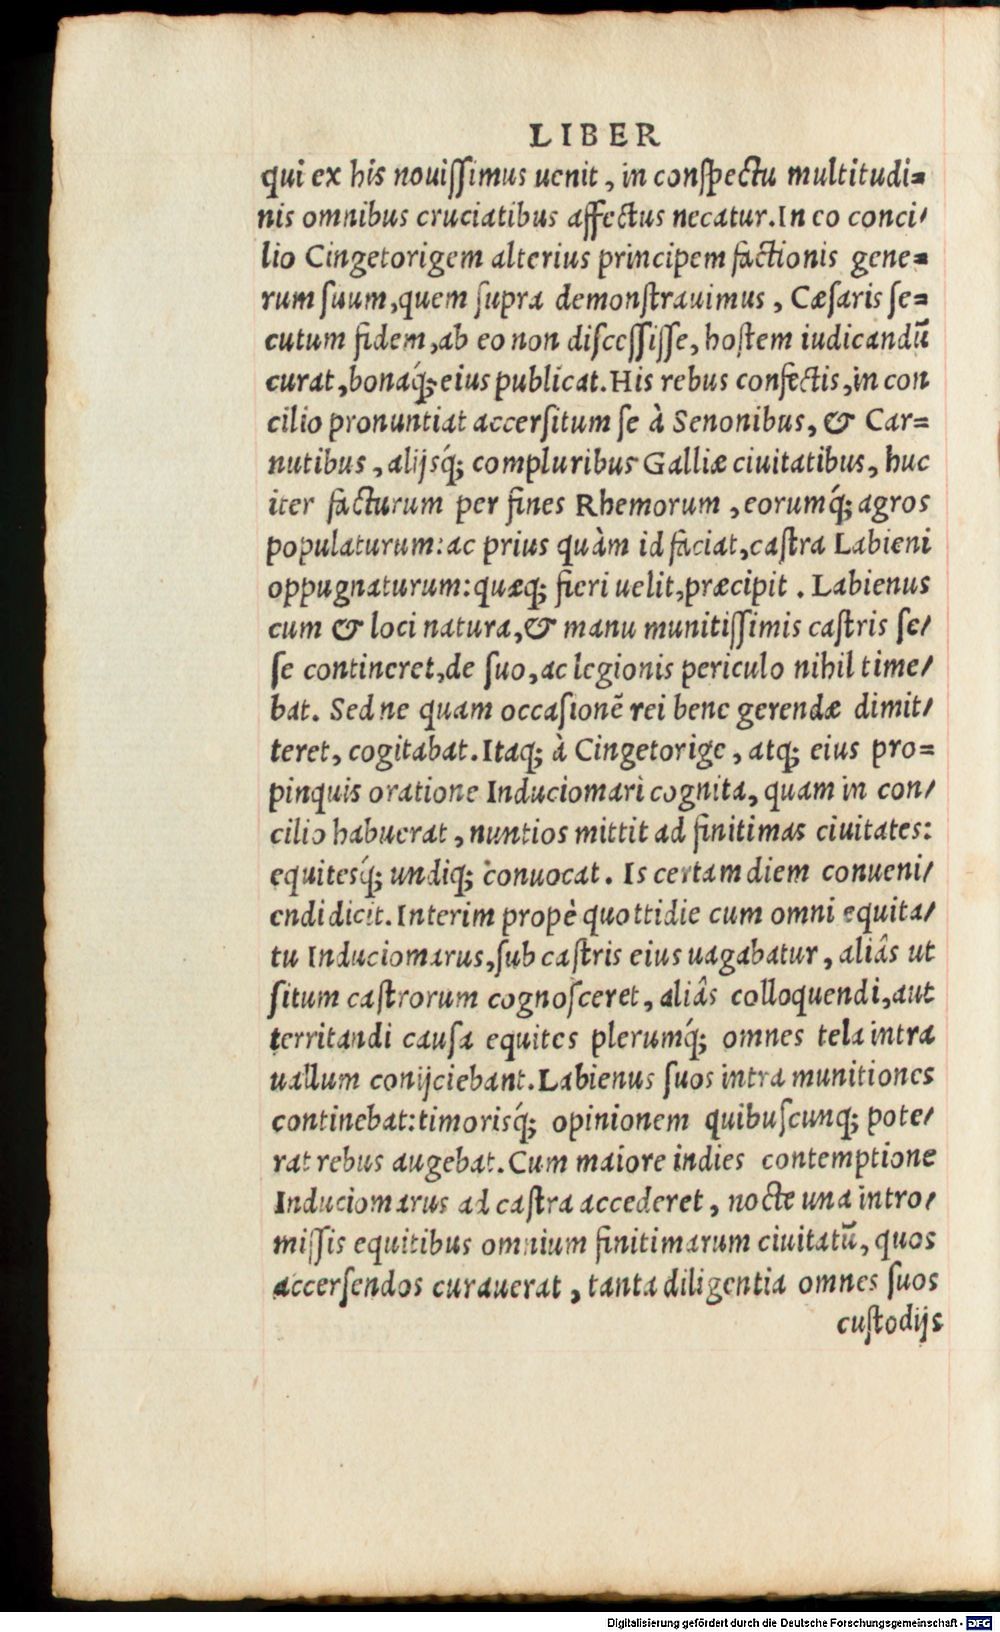 LIBER
qui ex his nouiſſimus uenit, in conſpectu multitudi=
nis omnibus cruciatibus affectus necatur. In eo conci/
lio Cingetorigem alterius principem factionis gene=
rum ſuum, quem ſupra demonſtrauimus, Cæſaris ſe=
cutum fidem, ab eo non diſceſſiſſe, hoſtem iudicandũ
curat, bonaq́; eius publicat. His rebus confectis, in con
cilio pronuntiat accerſitum ſe à Senonibus, & Car=
nutibus, alijsq́; compluribus Galliæ ciuitatibus, huc
iter facturum per fines Rhemorum, eorumq́; agros
populaturum: ac prius quàm id faciat, caſtra Labieni
oppugnaturum: quæq; fieri uelit, præcipit. Labienus
cum & loci natura, & manu munitiſſimis caſtris ſe/
ſe contineret, de ſuo, ac legionis periculo nihil time/
bat. Sed ne quam occaſionẽ rei bene gerendæ dimit/
teret, cogitabat. Itaq; à Cingetorige, atq; eius pro=
pinquis oratione Induciomari cognita, quam in con/
cilio habuerat, nuntios mittit ad finitimas ciuitates:
equitesq́; undiq; conuocat. Is certam diem conueni/
endi dicit. Interim propè quottidie cum omni equita/
tu Induciomarus, ſub caſtris eius uagabatur, aliâs ut
ſitum caſtrorum cognoſceret, aliâs colloquendi, aut
territandi cauſa equites plerumq́; omnes tela intra
uallum conijciebant. Labienus ſuos intra munitiones
continebat: timorisq́; opinionem quibuſcunq; pote/
rat rebus augebat. Cum maiore indies contemptione
Induciomarus ad caſtra accederet, nocte una intro/
miſſis equitibus omnium finitimarum ciuitatũ, quos
accerſendos curauerat, tanta diligentia omnes ſuos
cuſtodijs
Digitalisierung gefördert durch die Deutsche Forschungsgemeinschaft - DFG